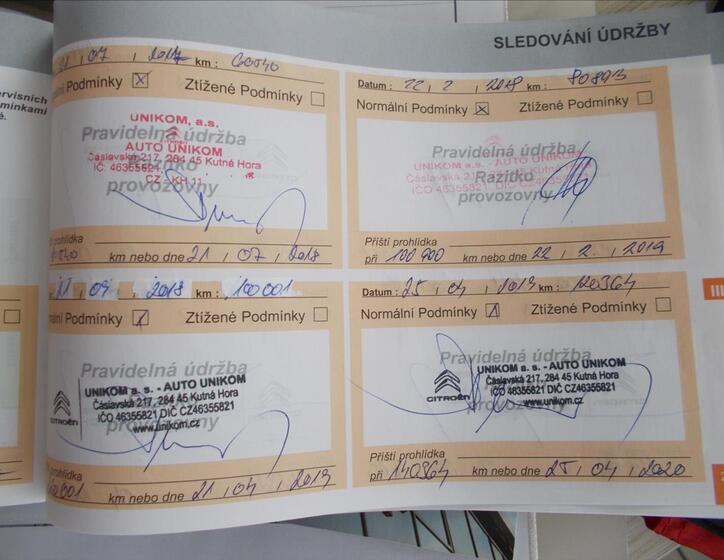 SLEDOVÁNÍ ÚDRŽBY
ervisních
mínkami
é.
07 , 2017 km : 60040
Podmínky ☒ Ztížené Podmínky ☐
Pravidelná údržba
Razítko
provozovny
UNIKOM, a.s.
AUTO UNIKOM
Čáslavská 217, 284 45 Kutná Hora
IČ: 46355821
CZ - KH 11
prohlídka
km nebo dne 21 , 07 , 2018
Datum : 22 , 2 , 2018 km : 80893
Normální Podmínky ☒ Ztížené Podmínky ☐
Pravidelná údržba
Razítko
provozovny
UNIKOM a.s. - AUTO UNIKOM
Čáslavská 217, 284 45 Kutná Hora
IČO 46355821 DIČ CZ46355821
Příští prohlídka
při 100 900 km nebo dne 22 , 2 , 2019
2018 km : 100001
Podmínky ☒ Ztížené Podmínky ☐
Pravidelná údržba
provozovny
CITROËN
UNIKOM a. s. - AUTO UNIKOM
Čáslavská 217, 284 45 Kutná Hora
IČO 46355821 DIČ CZ46355821
www.unikom.cz
prohlídka
km nebo dne 21 , 04 , 2019
Datum : 25 , 04 , 2019 km : 120364
Normální Podmínky ☒ Ztížené Podmínky ☐
Pravidelná údržba
provozovny
CITROËN
UNIKOM a. s. - AUTO UNIKOM
Čáslavská 217, 284 45 Kutná Hora
IČO 46355821 DIČ CZ46355821
www.unikom.cz
Příští prohlídka
při 140364 km nebo dne 25 , 04 , 2020
III